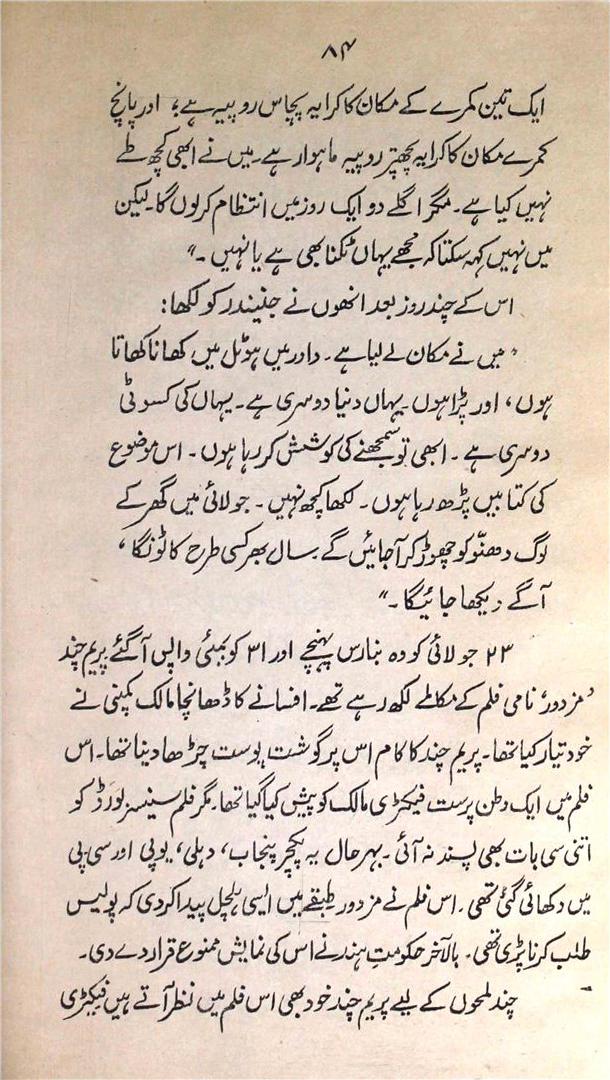 ۸۴
ایک تین کمرے کے مکان کا کرایہ پچاس روپیہ ہے، اور پانچ
کمرے مکان کا کرایہ پچھتر روپیہ ماہوار ہے۔ میں نے ابھی کچھ طے
نہیں کیا ہے۔ مگر اگلے دو ایک روز میں انتظام کرلوں گا۔ لیکن
میں نہیں کہہ سکتا کہ مجھے یہاں ٹکنا بھی ہے یا نہیں۔"
اس کے چند روز بعد انھوں نے جنیندر کو لکھا:
"میں نے مکان لے لیا ہے۔ دادر میں ہوٹل میں کھانا کھاتا
ہوں، اور پڑا ہوں۔ یہاں دنیا دوسری ہے۔ یہاں کی کسوٹی
دوسری ہے۔ ابھی تو سمجھنے کی کوشش کر رہا ہوں۔ اس موضوع
کی کتابیں پڑھ رہا ہوں۔ لکھا کچھ نہیں۔ جولائی میں گھر کے
لوگ دھنّو کو چھوڑ کر آجائیں گے۔ سال بھر کسی طرح کاٹونگا،
آگے دیکھا جائیگا۔"
۲۳ جولائی کو وہ بنارس پہنچے اور ۳۱ کو بمبئی واپس آگئے پریم چند
'مزدور' نامی فلم کے مکالمے لکھ رہے تھے۔ افسانے کا ڈھانچا مالک کمپنی نے
خود تیار کیا تھا۔ پریم چند کا کام اس پر گوشت پوست چڑھا دینا تھا۔ اس
فلم میں ایک وطن پرست فیکٹری مالک کو پیش کیا گیا تھا۔ مگر فلم سینسر بورڈ کو
اتنی سی بات بھی پسند نہ آئی۔ بہرحال یہ پکچر پنجاب، دہلی، یوپی اور سی پی
میں دکھائی گئی تھی۔ اس فلم نے مزدور طبقے میں ایسی ہلچل پیدا کردی کہ پولیس
طلب کرنا پڑی تھی۔ بالآخر حکومتِ ہند نے اس کی نمایش ممنوع قرار دے دی۔
چند لمحوں کے لیے پریم چند خود بھی اس فلم میں نظر آتے ہیں فیکٹری